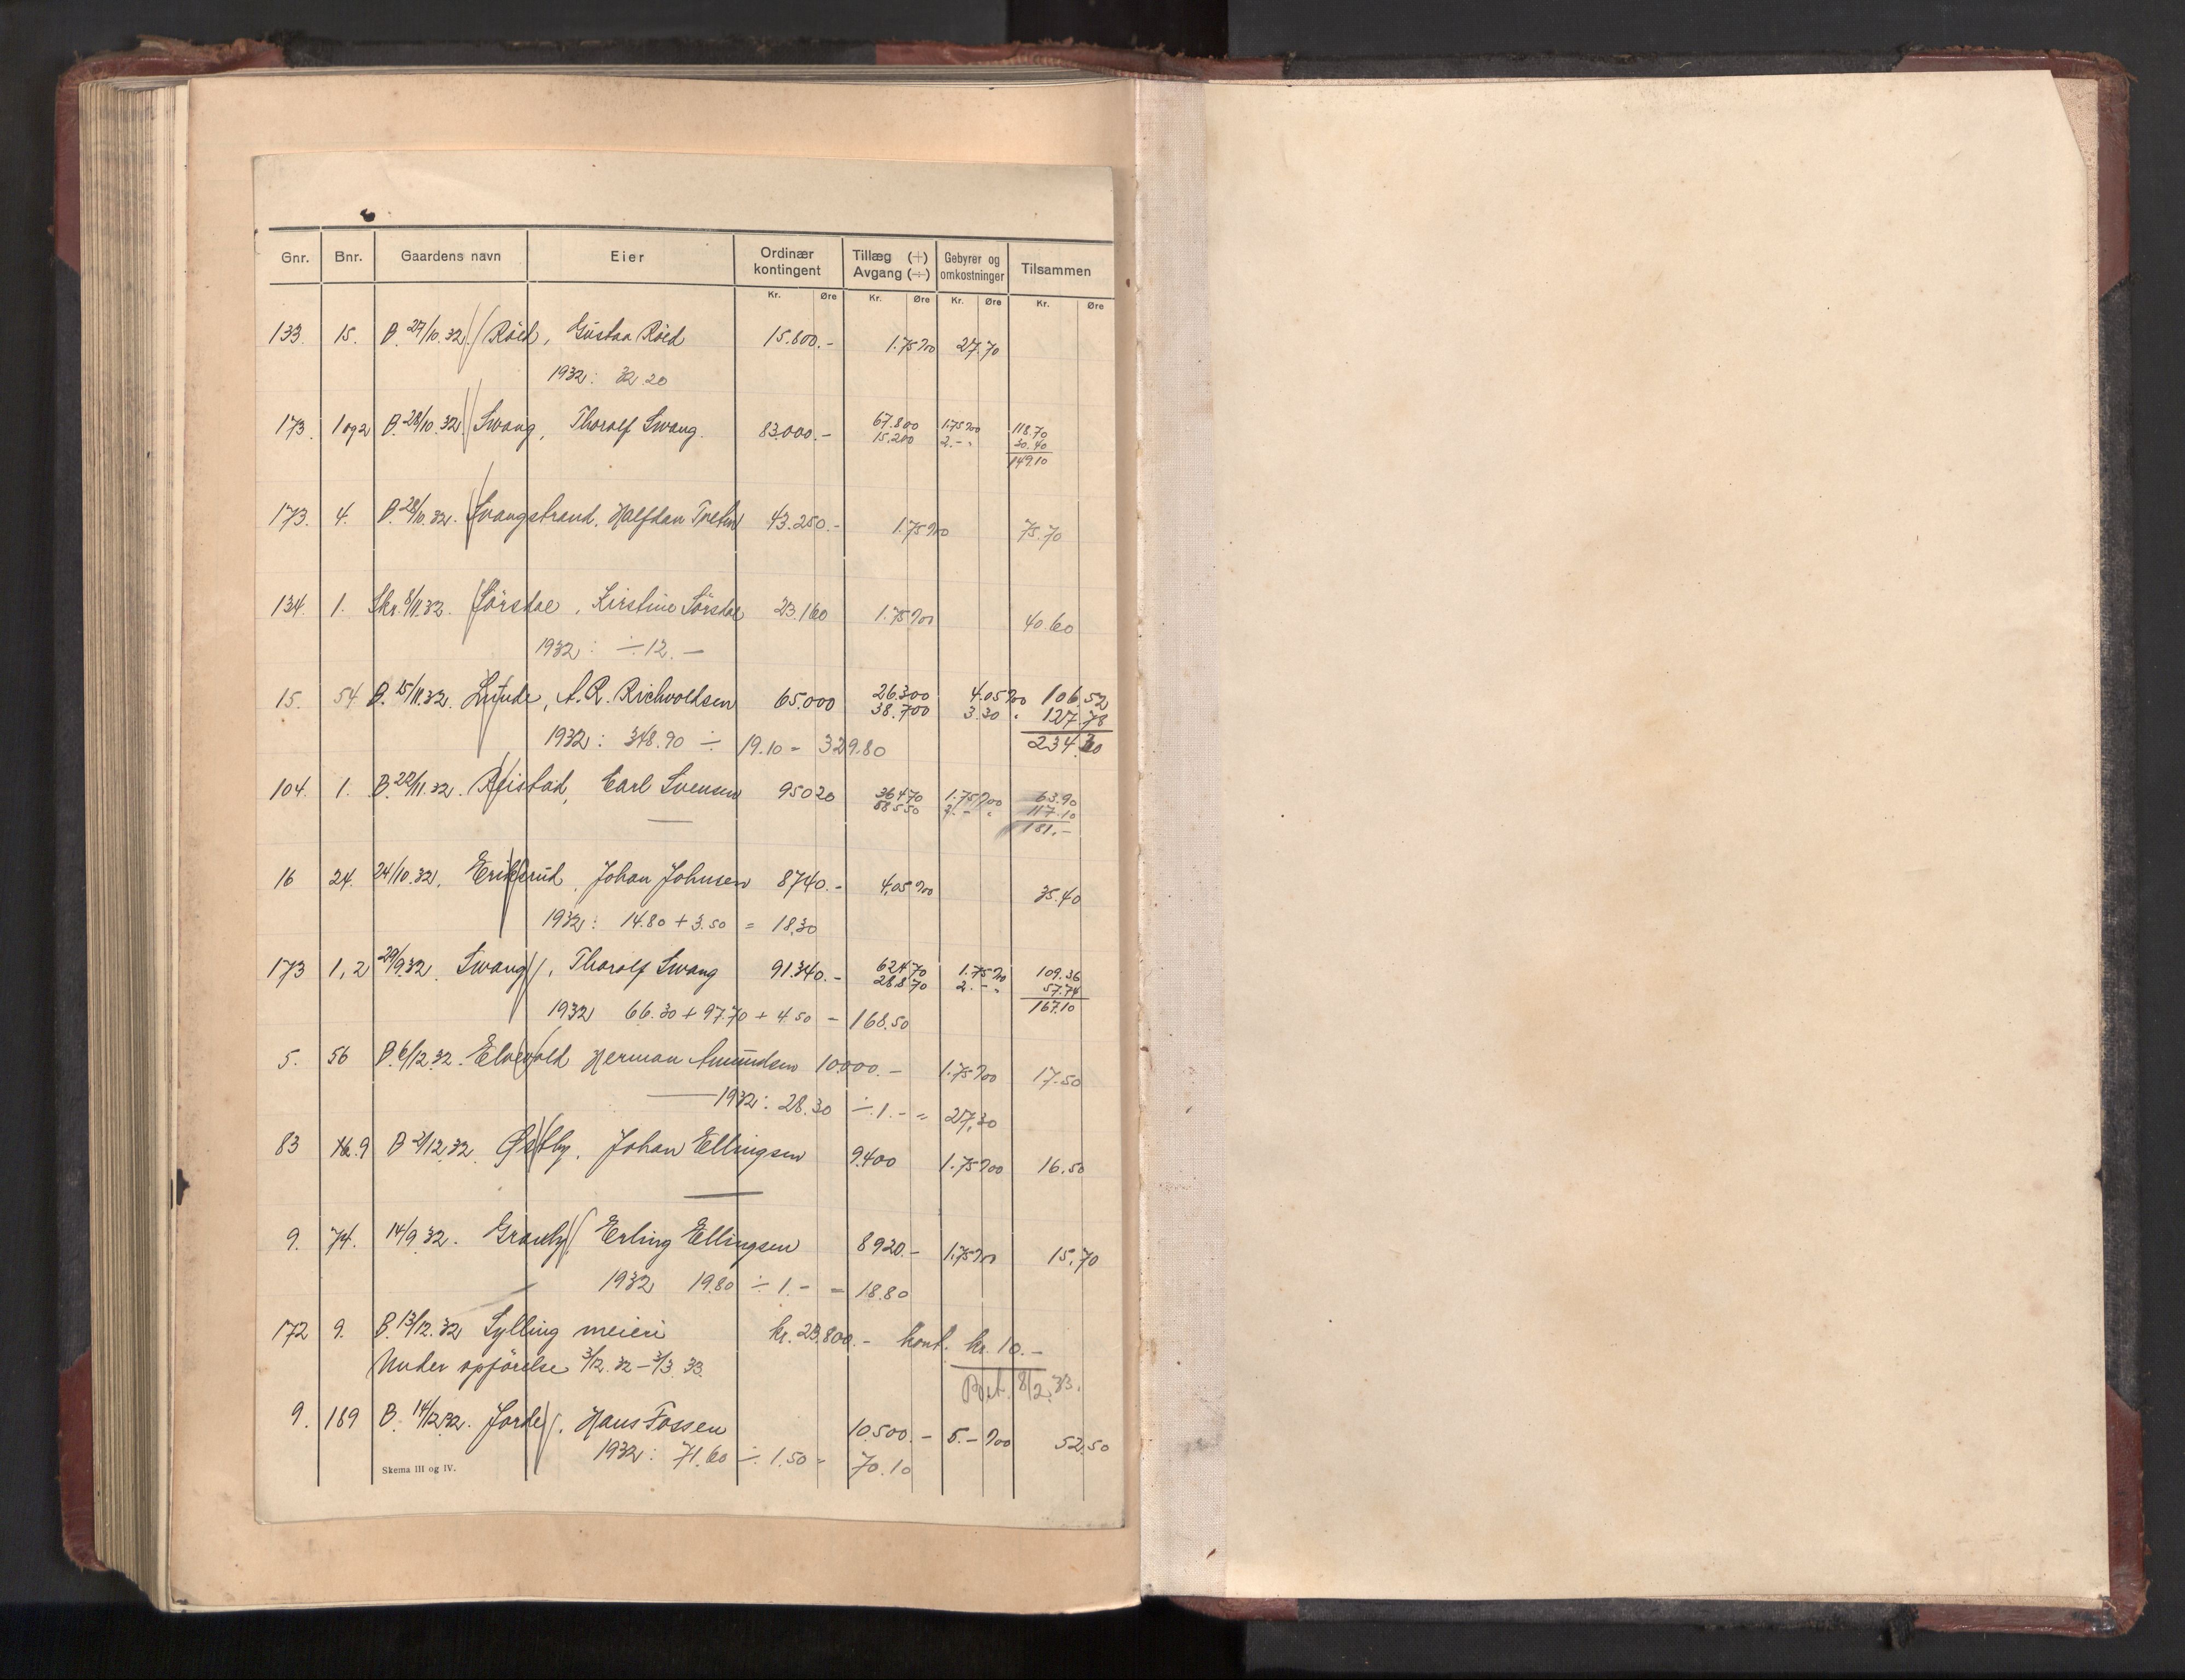 Gnr. Bnr. Gaardens navn Eier Ordinær kontingent Tillæg (+) Avgang (÷) Gebyrer og omkostninger Tilsammen
Kr. Øre Kr. Øre Kr. Øre Kr. Øre
133. 15. B. 27/10.32. Röed, Gustav Röed 15.800.- 1.75 ‰ 27.70
1932: 32.20
173. 1 og 2 B. 28/10.32. Svang, Thorolf Svang. 83000.- 67.800 1.75 ‰ 118.70
15.200 2.- " 30.40
149.10
173. 4. B. 28/10.32. Svangstrand, Halfdan 43.250.- 1.75 ‰ 75.70
134. 1. Skr. 8/11.32. Sörsdal, Kirstine Sörsdal 23.160 1.75 ‰ 40.60
1932: ÷ 12.-
15. 54 B. 15/11.32. A. R. Richvoldsen 65.000 26.300 4.05 ‰ 106.52
38.700 3.30 " 127.78
234.30
1932: 348.90 ÷ 19.10 = 329.80
104. 1. B. 22/11.32. Reistad, Carl Svensen 95020 36470 1.75 ‰ 63.90
58550 2.- " 117.10
181.-
16 24. 24/10.32. Eriksrud, Johan Johnsen 8740.- 4.05 ‰ 35.40
1932: 14.80 + 3.50 = 18.30
173 1, 2 29/9.32. Svang, Thorolf Svang 91.340.- 62470 1.75 ‰ 109.36
28870 2.- " 57.74
167.10
1932 66.30 + 97.70 + 4.50 - 168.50
5. 56 B. 6/12.32. Elvevold Herman Amundsen 10.000.- 1.75 ‰ 17.50
1932: 28.30 ÷ 1.- = 27.30
83 9 B 2/12.32. Østby. Johan Ellingsen 9.400 1.75 ‰ 16.50
9. 74. 14/9.32. Granly Erling Ellingsen 8920.- 1.75 ‰ 15.70
1932 19.80 ÷ 1.- = 18.80
172 9. B. 13/12.32 Sylling meieri kr. 23.800.- kont. kr. 10.-
Under opförelse 3/12.32 - 3/3.33.
Bet. 8/2.33.
9. 189 B. 14/12.32. Jorde, Hans Fossen 10.500.- 5.- ‰ 52.50
1932: 71.60 ÷ 1.50 = 70.10
Skema III og IV.